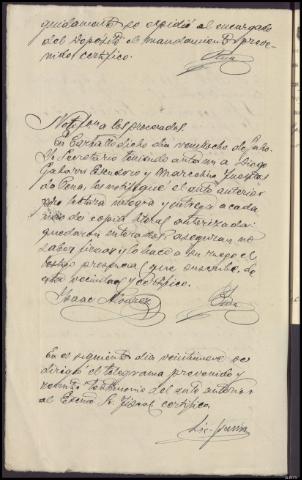 guidamente se expidió al encargado
del Depósito el mandamiento preve-
nido; certifico.
Notifon a los procesados.
En dicho dia veintiocho de
Secretario teniendo ante mi a Diego
y Marcelino
de Vera, les notifiqué el auto anterior
por lectura integra y entrega a cada
uno de copia literal autorizada:
quedaron enterados, aseguran no
saber firmar y lo hace a su ruego el
testigo presencial que suscribe, de
esta vecindad y certifico.
Isaac
En el siguiente dia veintinueve se
dirigió el telegrama prevenido y
remitió testimonio del auto anterior
al Excmo. Sr. Fiscal, certifico.